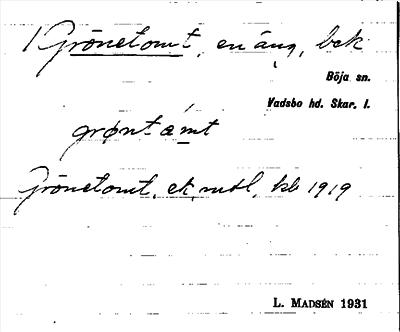 1 Grönetomt, en äng, bek
Böja sn.
Vadsbo hd. Skar. l.
grønt åmt
Grönetomt, ek, mtl, kb 1919
L. MADSÉN 1931